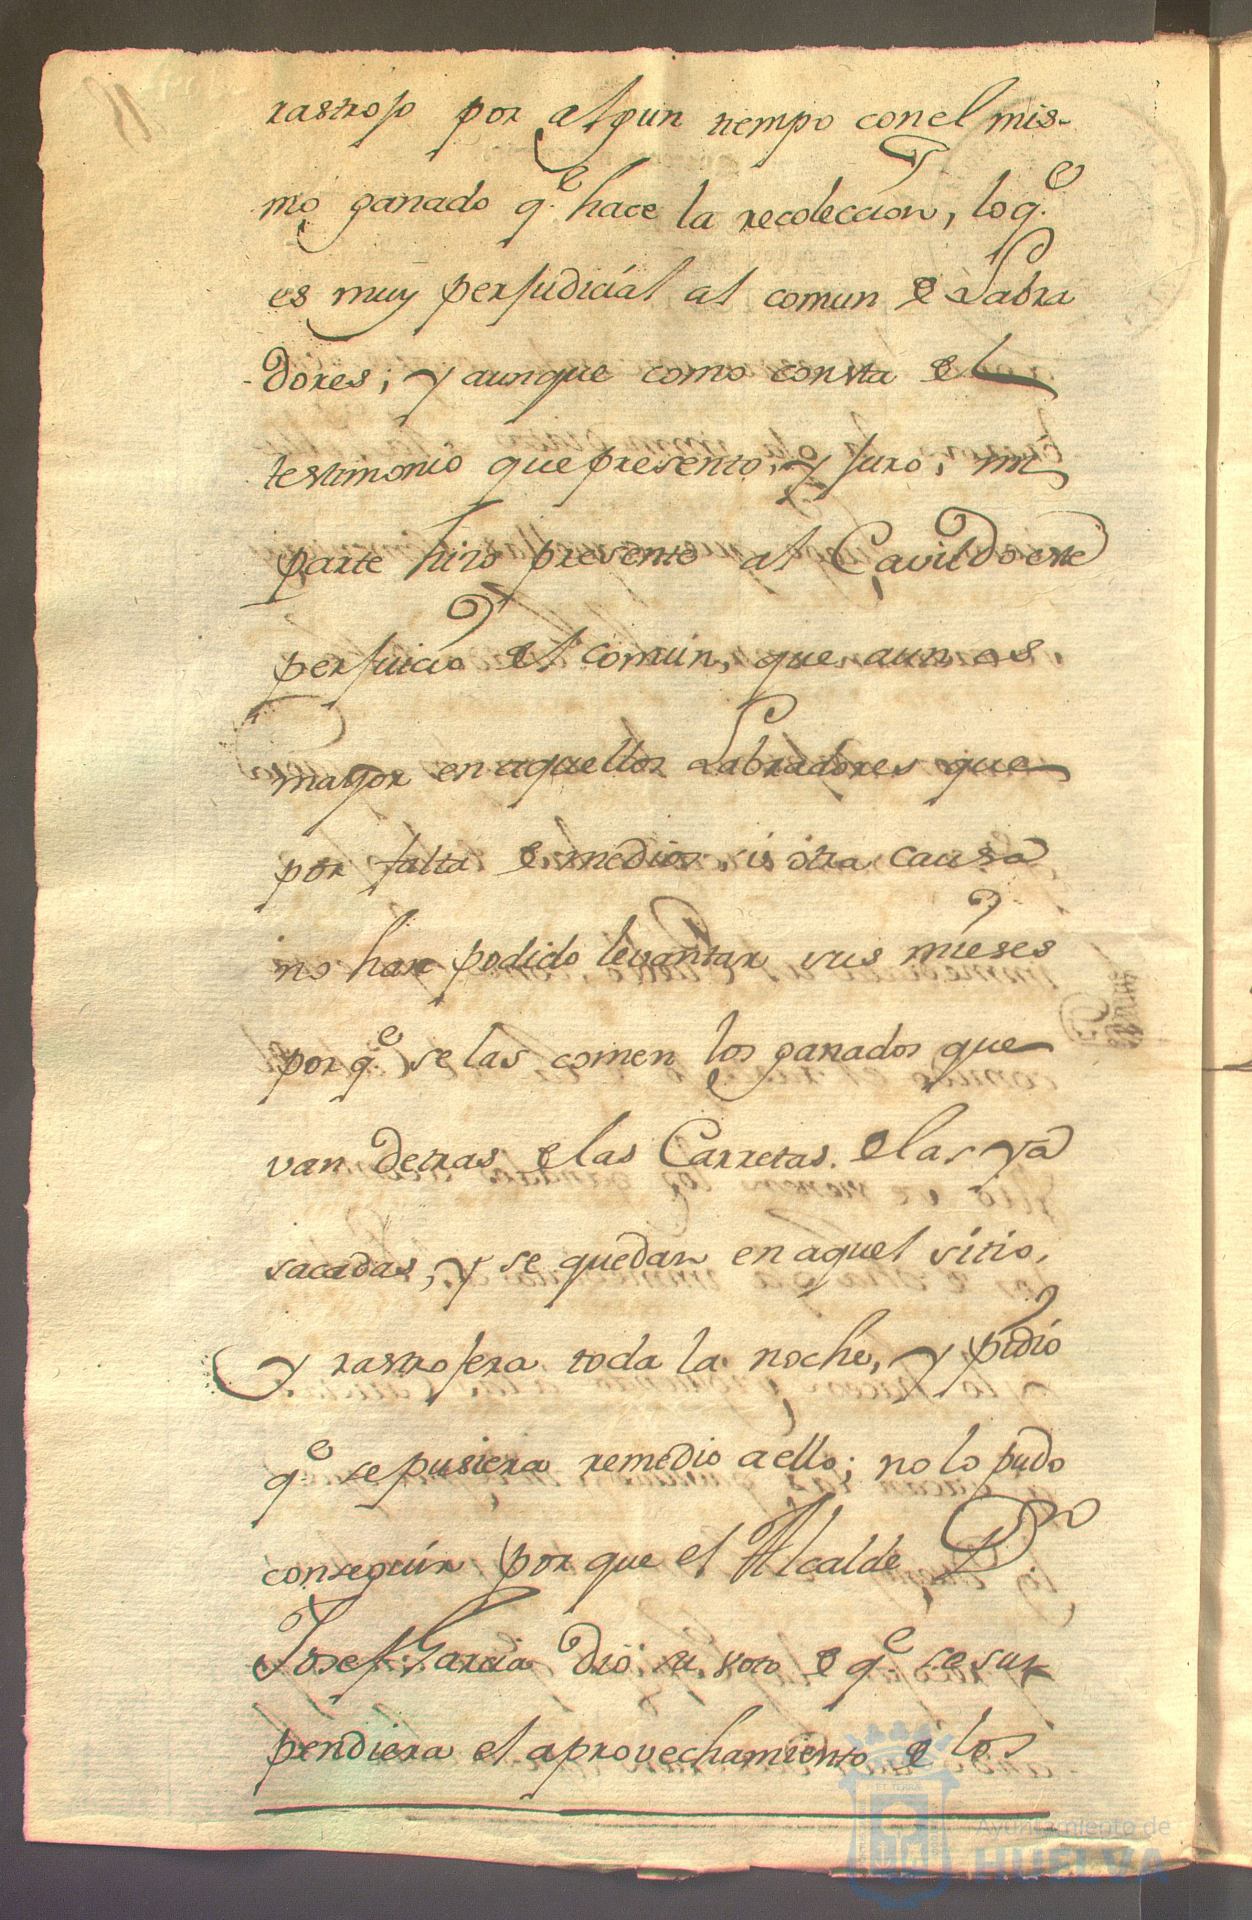 rastrojo por algun tiempo con el mis-
mo ganado q.e hace la recoleccion, lo q.e
es muy perjudiciál al comun de Labra
-dores; y aunque como consta del
testimonio que presento, y juro, mi
parte hizo presente al Cavildo este
perjuicio del comun, que aun es
mayor en aquellos Labradores que
por falta de medios, ú otra causa
no han podido levantar sus mieses
por q.e se las comen los ganados que
van detras de las Carretas de las ya
sacadas, y se quedan en aquel sitio,
y rastrojera toda la noche, y pidió
q.e se pusiera remedio a ello; no lo pudo
conseguir por que el Alcalde D.n
Josef Garcia dio su voto de q.e se sus
pendiera el aprovechamiento de los
Ayuntamiento de
HUELVA